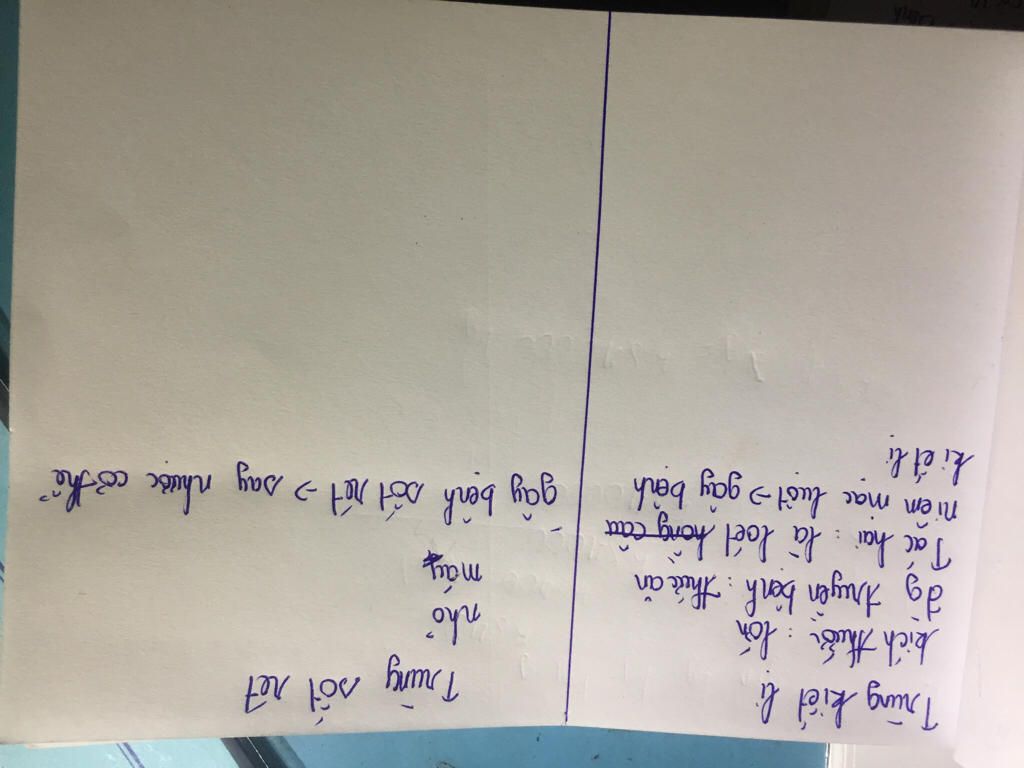 Trùng kiết lị
kích thước : lớn
đg truyền bệnh : thức ăn
Tác hại : là loét hồng cầu
niêm mạc ruột -> gây bệnh
kiết lị
Trùng sốt rét
nhỏ
máu
- gây bệnh sốt rét -> suy nhược cơ thể